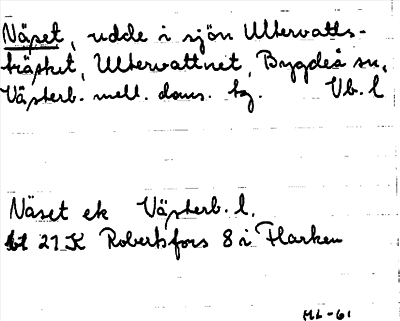 Näset, udde i sjön Ultervatts-
träsket, Ultervattnet, Bygdeå sn,
Västerb. mell. doms. tg. Vb. l
Näset ek Västerb. l.
bl 21 K Robertsfors 8 i Flarken
HL-61